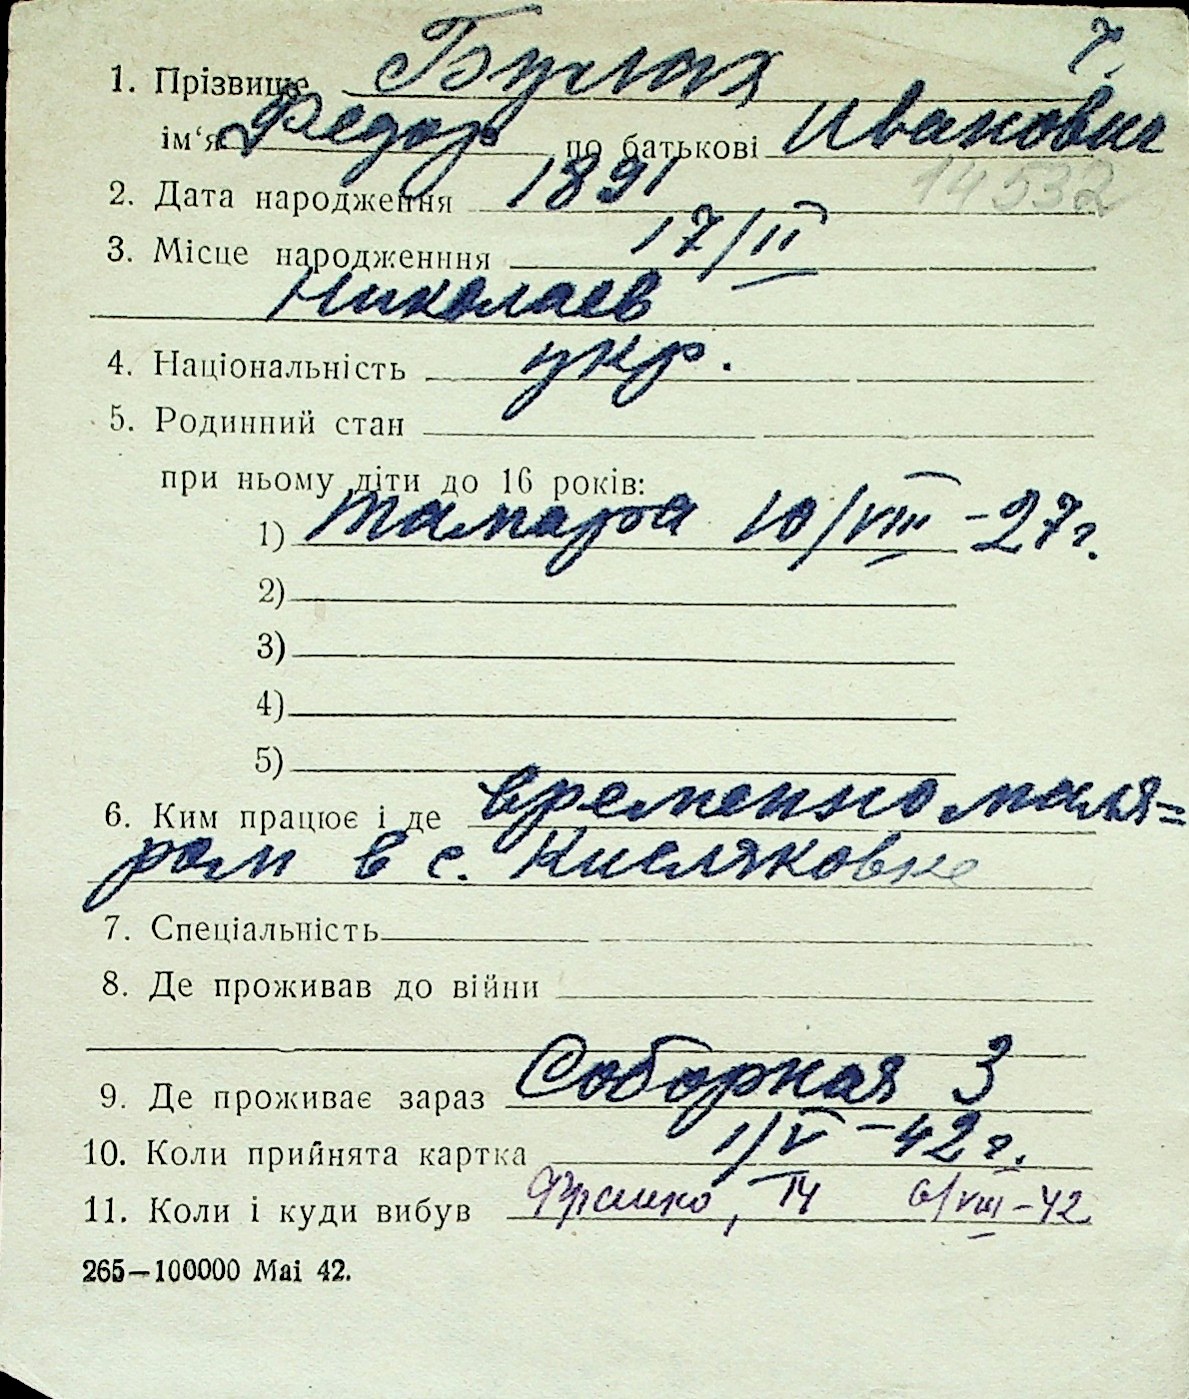 1. Прізвище Булах Ч.
ім‘я Федор по батькові Иванович
14532
2. Дата народження 1891
17/II
3. Місце народженння
Николаев
4. Національність укр.
5. Родинний стан
при ньому діти до 16 років:
1) Тамара 10/VIII - 27 г.
2)
3)
4)
5)
6. Ким працює і де временно маля=
ром в с. Кисляковке
7. Спеціальність
8. Де проживав до війни
9. Де проживає зараз Соборная 3
10. Коли прийнята картка 1/V - 42 г.
11. Коли і куди вибув Франко, 6/VIII - 42
265—100000 Mai 42.